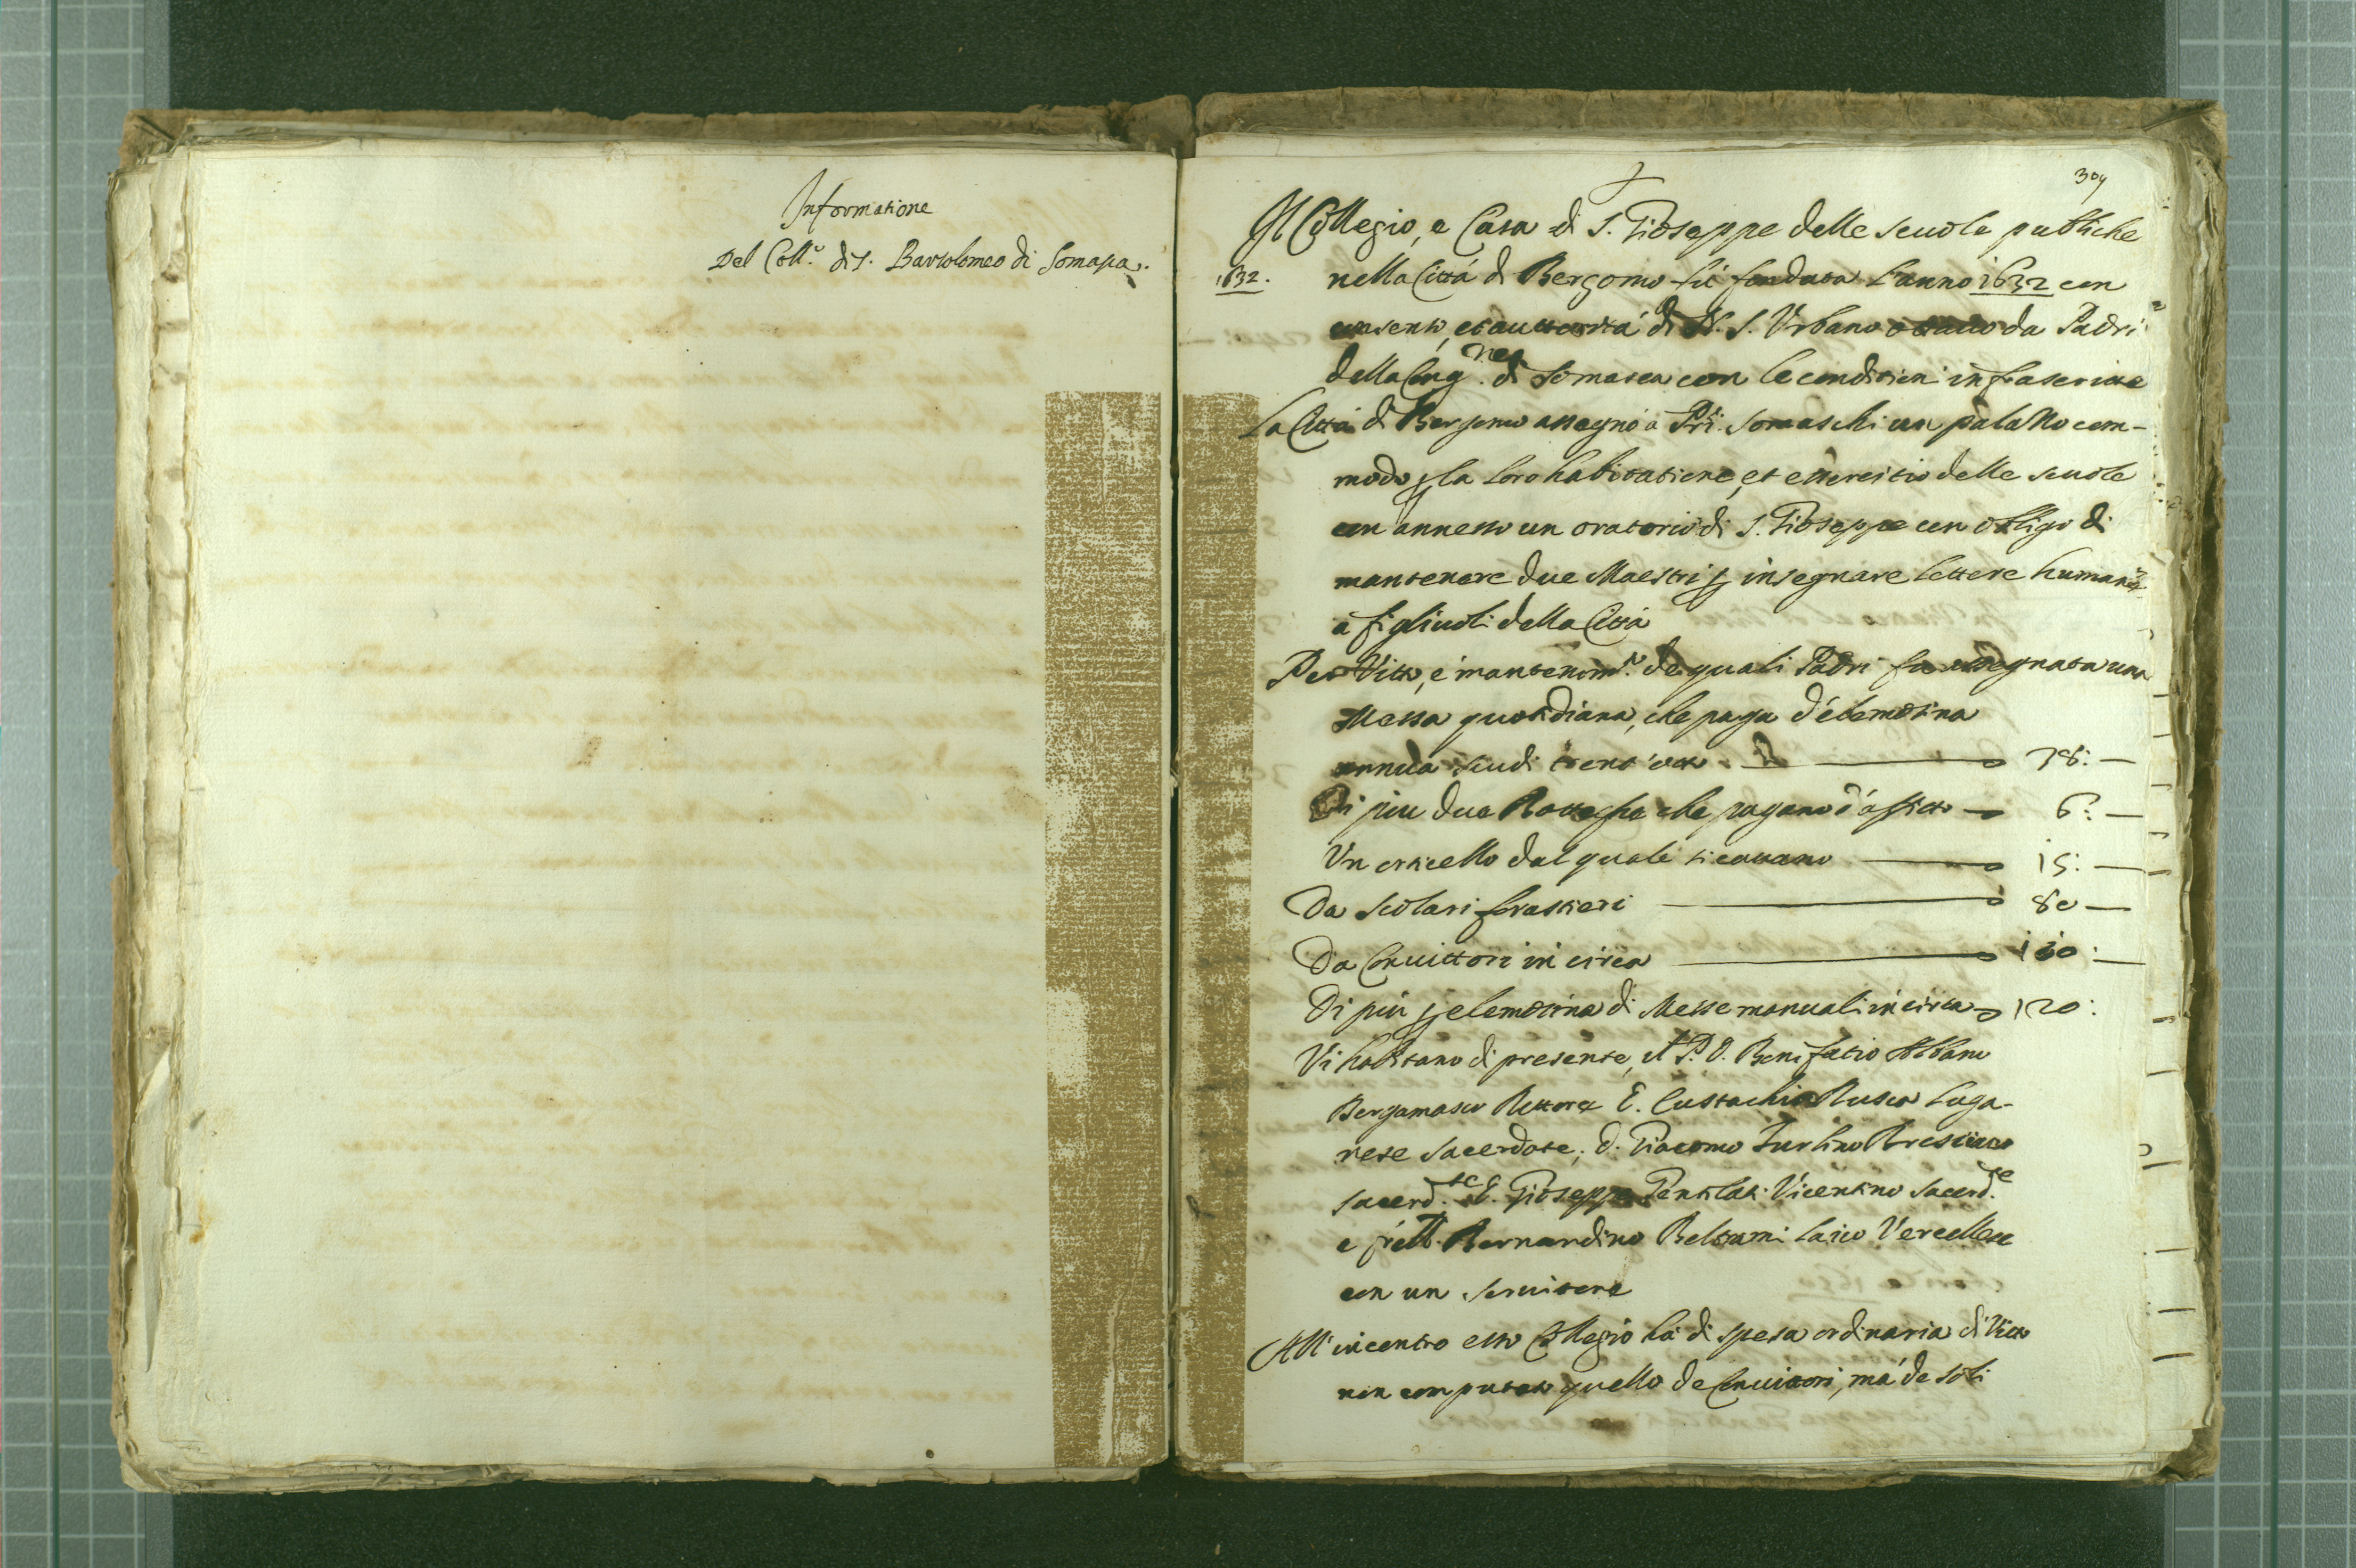 Informatione
Del Coll.º di S. Bartolomeo di Somasca.
309
Il Collegio, e Casa di S. Gioseppe delle scuole publiche
1632. nella Città di Bergomo fù fondata l'anno 1632 con
consenso, et auttorità di N. S. Urbano ottavo da Padri
della Cong.ne di Somasca con le conditioni infrascritte
La Città di Bergomo assegnò a Pri. Somaschi un palazzo com-
modo p la loro habitatione, et essercitio delle scuole
con annesso un oratorio di S. Gioseppe con obligo di
mantenere due Maestri p insegnare lettere humane
a figliuoli della Città
Per Vitto, e mantenim.to de quali Padri fu assegnata una
Messa quotidiana, che paga d'elemosina
annua scudi trent'otto 38: —
Di piu due Botteghe che pagano d'affitto — 6: —
Un orticello dal quale si cavano 15: —
Da scolari forastieri 80 —
Da Convittori in circa :—
Di più p elemosina di Messe manuali in circa 120:
Vi habitano di presente, il P. D. Bonifatio Albani
Bergamasco Rettore D. Eustachio Rusca Luga-
nese sacerdote, D. Giacomo Turlino Bresciano
sacerd.te D. Gioseppe Vicentino sacerd.te
e frâtt. Bernardino Beltrami laico Vercellese
con un servitore
All'incontro esso Collegio hà di spesa ordinaria di Vitto
non computato quello de Convittori, mà de soli